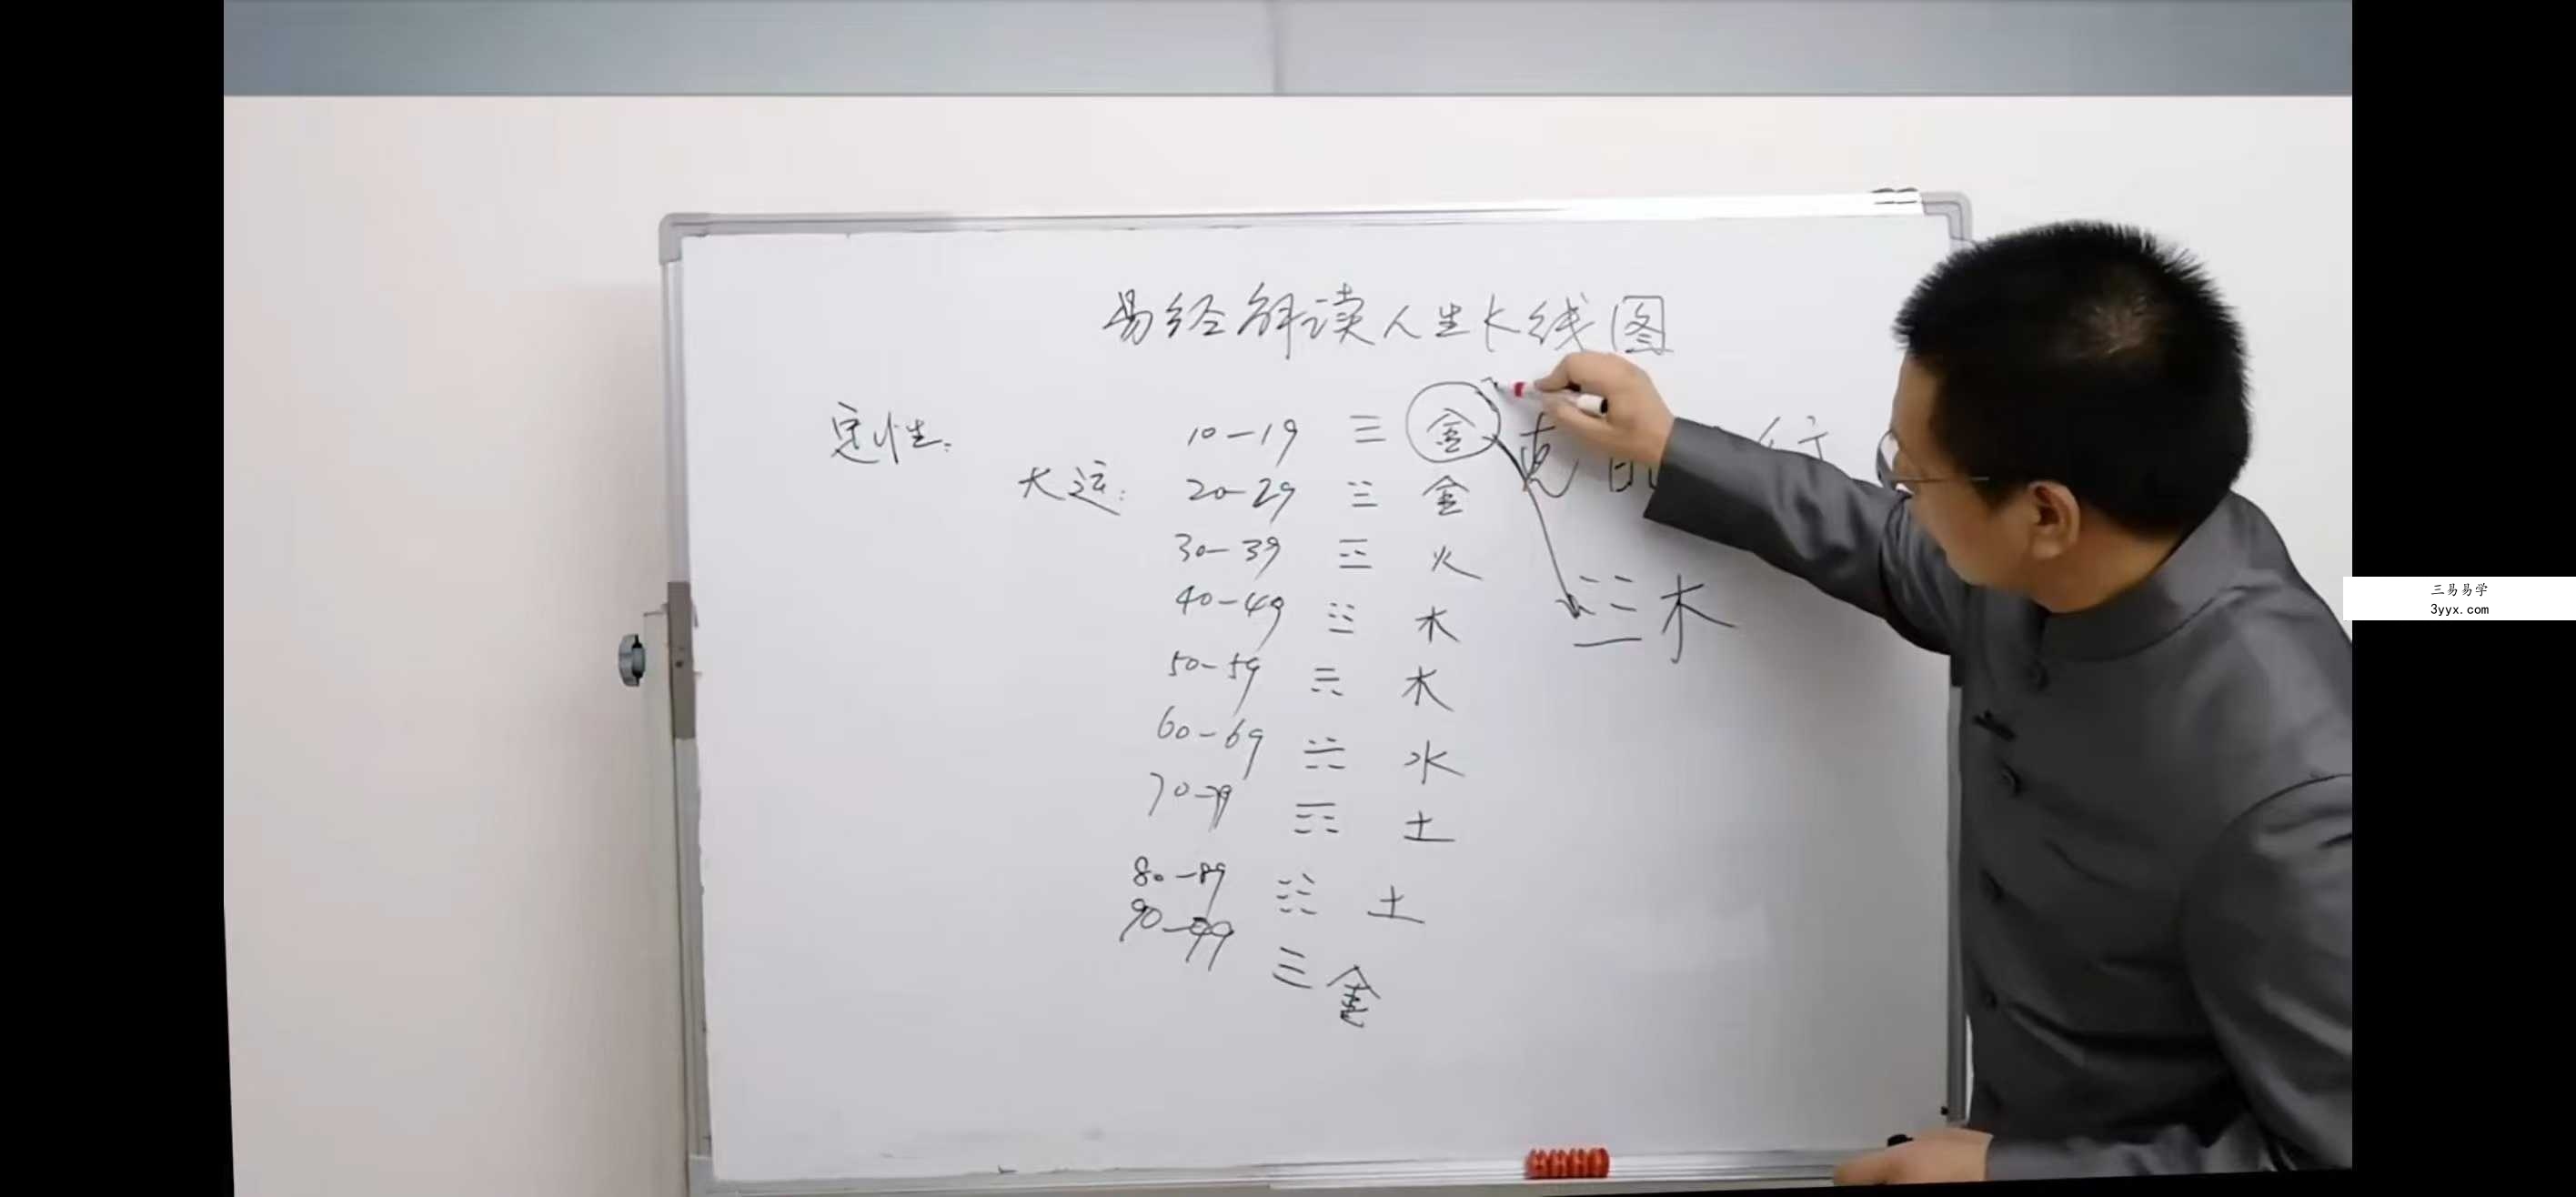 易经解读人生K线图
定性:
大运:
10-19 ☰ 金
克 行
20-29 ☱ 金
30-39 ☲ 火
40-49 ☳ 木
☳木
50-59 ☴ 木
60-69 ☵ 水
70-79 ☶ 土
80-89 ☷ 土
90-99 ☰ 金
三易易学
3yyx.com